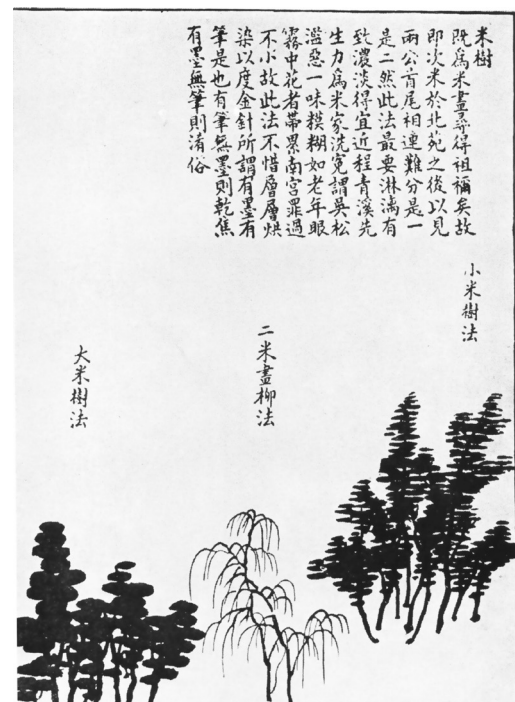 米樹
既爲米畫尋得祖禰矣故
即次米於北苑之後以見
兩公首尾相連難分是一
是二然此法最要淋漓有
致濃淡得宜近程青溪先
生力爲米家洗冤謂吳松
濫惡一味糢糊如老年眼
霧中花者帶累南宮罪過
不小故此法不惜層層烘
染以度金針所謂有墨有
筆是也有筆無墨則乾焦
有墨無筆則渚俗
小米樹法
二米畫柳法
大米樹法